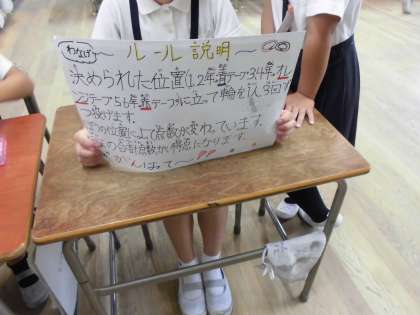 わなげ
〜ルール説明〜
決められた位置(1.2年 青テープ 3.4年.オレ
ンジテープ5.6年 黄テープ)に立って輪を1人3回ず
つ投げます。
の位置によって点数が変わっています。
の合計点数が得点になります。
がんばって〜!!